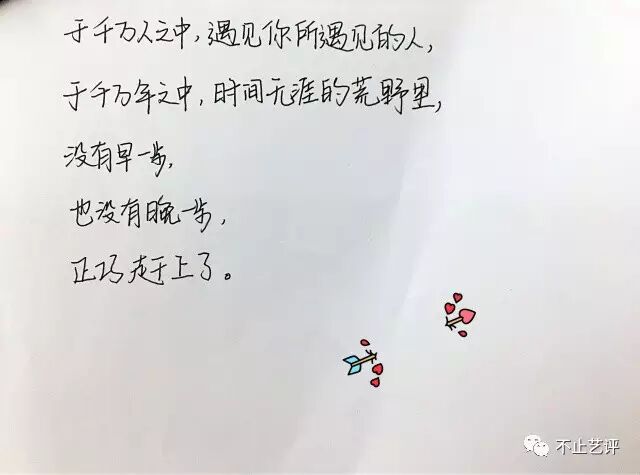 于千万人之中，遇见你所遇见的人，
于千万年之中，时间无涯的荒野里，
没有早一步，
也没有晚一步，
正巧赶上了。
不止艺评